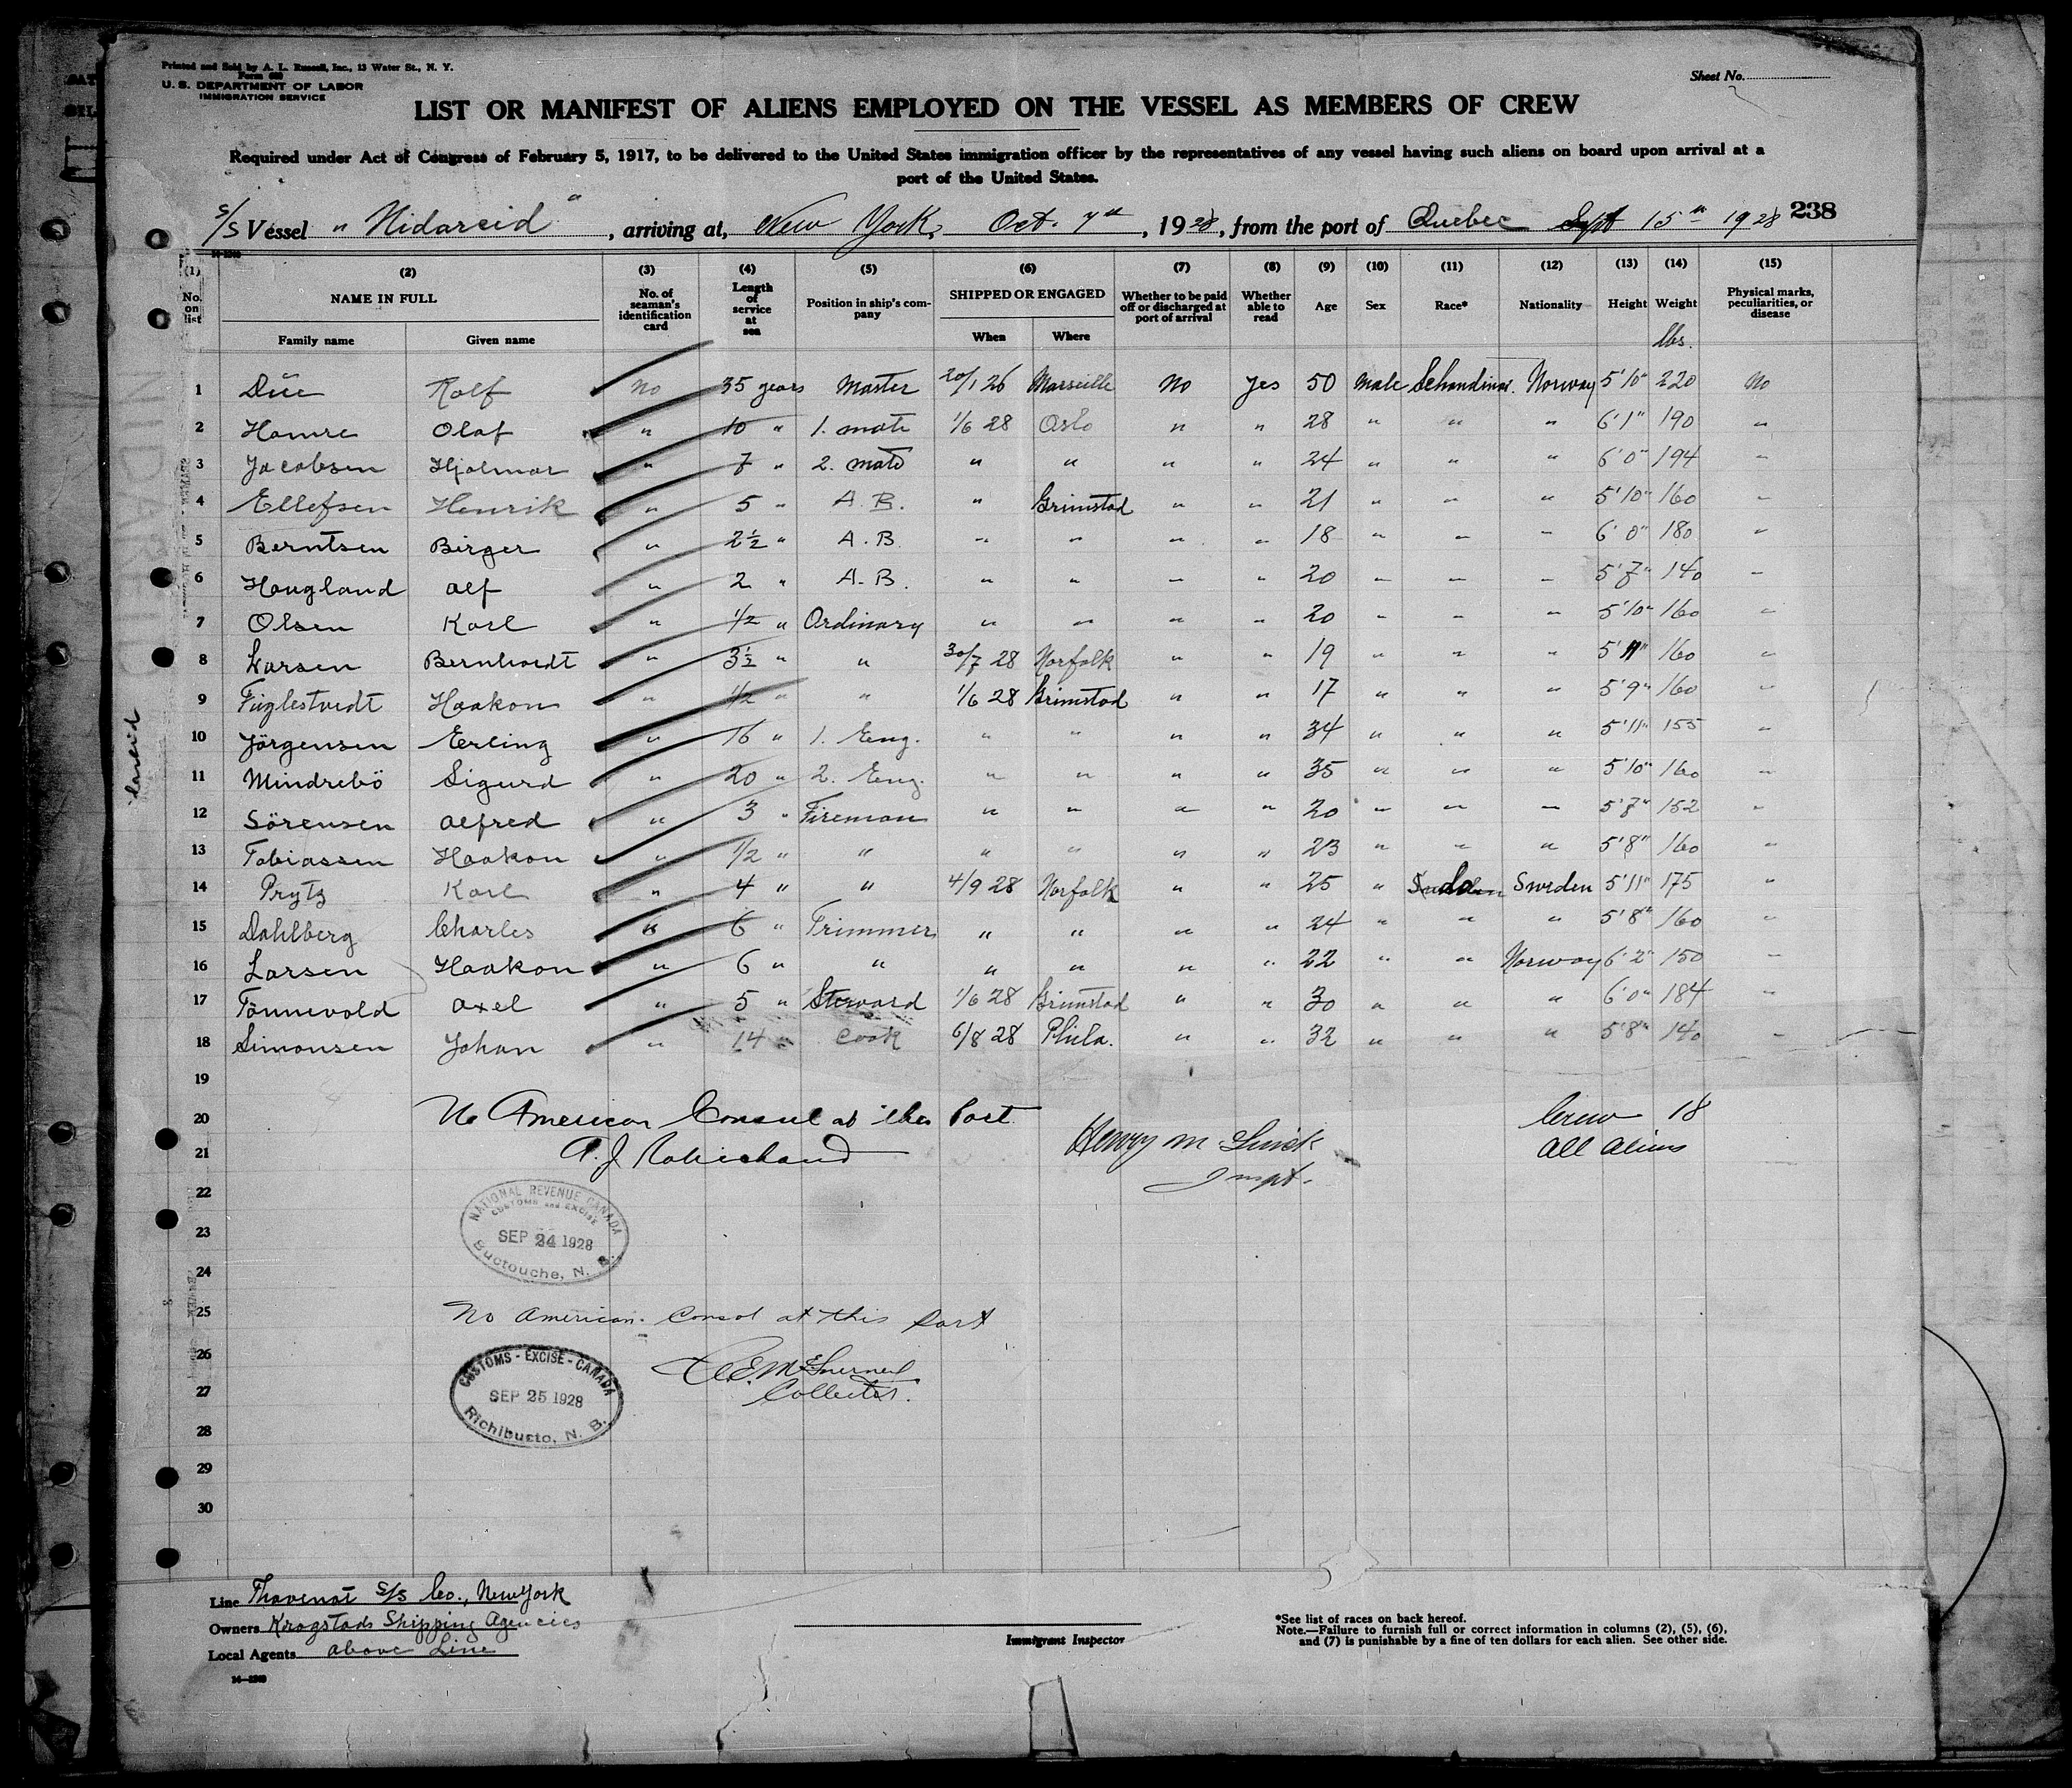 Printed and Sold by A. L. Russell, Inc., 13 Water St., N. Y.
Form 680
U. S. DEPARTMENT OF LABOR
IMMIGRATION SERVICE
Sheet No.
LIST OR MANIFEST OF ALIENS EMPLOYED ON THE VESSEL AS MEMBERS OF CREW
Required under Act of Congress of February 5, 1917, to be delivered to the United States immigration officer by the representatives of any vessel having such aliens on board upon arrival at a
port of the United States.
S/S Vessel "Nidareid", arriving at, New York, Oct. 7th, 1928, from the port of Quebec Sept 15th 1928 238
(1) (2) (3) (4) (5) (6) (7) (8) (9) (10) (11) (12) (13) (14) (15)
No. on list NAME IN FULL Family name Given name No. of seaman's identification card Length of service at sea Position in ship's company SHIPPED OR ENGAGED When Where Whether to be paid off or discharged at port of arrival Whether able to read Age Sex Race* Nationality Height Weight Physical marks, peculiarities, or disease
lbs.
1 Düe Rolf No 35 years Master 20/1 26 Marseille No Yes 50 male Schandinav. Norway 5'10" 220 No
2 Hamre Olaf " 10 " 1. mate 1/6 28 Oslo " " 28 " " " 6'1" 190 "
3 Jacobsen Hjalmar " 7 " 2. mate " " " " 24 " " " 6'0" 194 "
4 Ellefsen Henrik " 5 " A. B. " Grimstad " " 21 " " " 5'10" 160 "
5 Berntsen Birger " 2½ " A. B. " " " " 18 " " " 6'0" 180 "
6 Haugland Alf " 2 " A. B. " " " " 20 " " " 5'7" 140 "
7 Olsen Karl " ½ " Ordinary " " " " 20 " " " 5'10" 160 "
8 Larsen Bernhardt " 3½ " " 30/7 28 Norfolk " " 19 " " " 5'11" 160 "
9 Fuglestvedt Haakon " ½ " " 1/6 28 Grimstad " " 17 " " " 5'9" 160 "
10 Jörgensen Erling " 16 " 1. Eng. " " " " 34 " " " 5'11" 155 "
11 Mindrebö Sigurd " 20 " 2. Eng. " " " " 35 " " " 5'10" 160 "
12 Sörensen Alfred " 3 " Fireman " " " " 20 " " " 5'7" 152 "
13 Tobiassen Haakon " ½ " " " " " " 23 " " " 5'8" 160 "
14 Prytz Karl " 4 " " 4/9 28 Norfolk " " 25 " do Sweden 5'11" 175 "
15 Dahlberg Charles " 6 " Trimmer " " " " 24 " " " 5'8" 160 "
16 Larsen Haakon " 6 " " " " " " 22 " " Norway 6'2" 150 "
17 Tönnevold Axel " 5 " Steward 1/6 28 Grimstad " " 30 " " " 6'0" 184 "
18 Simonsen Johan " 14 " Cook 6/8 28 Phila. " " 32 " " " 5'8" 140 "
19
20 No American Consul at this Port Crew 18
21 Henry M All Aliens
Inspt.
22
NATIONAL REVENUE CANADA
CUSTOMS and EXCISE
23 SEP 24 1928
Buctouche, N. B.
24
25 No American Consol at this Port
26
CUSTOMS - EXCISE - CANADA
27 Collector.
SEP 25 1928
Richibucto, N. B.
28
29
30
Line Thavenot S/S Co., New York
Owners Krogstads Shipping Agencies
Local Agents above Line
14—1240
Immigrant Inspector
*See list of races on back hereof.
Note.—Failure to furnish full or correct information in columns (2), (5), (6),
and (7) is punishable by a fine of ten dollars for each alien. See other side.